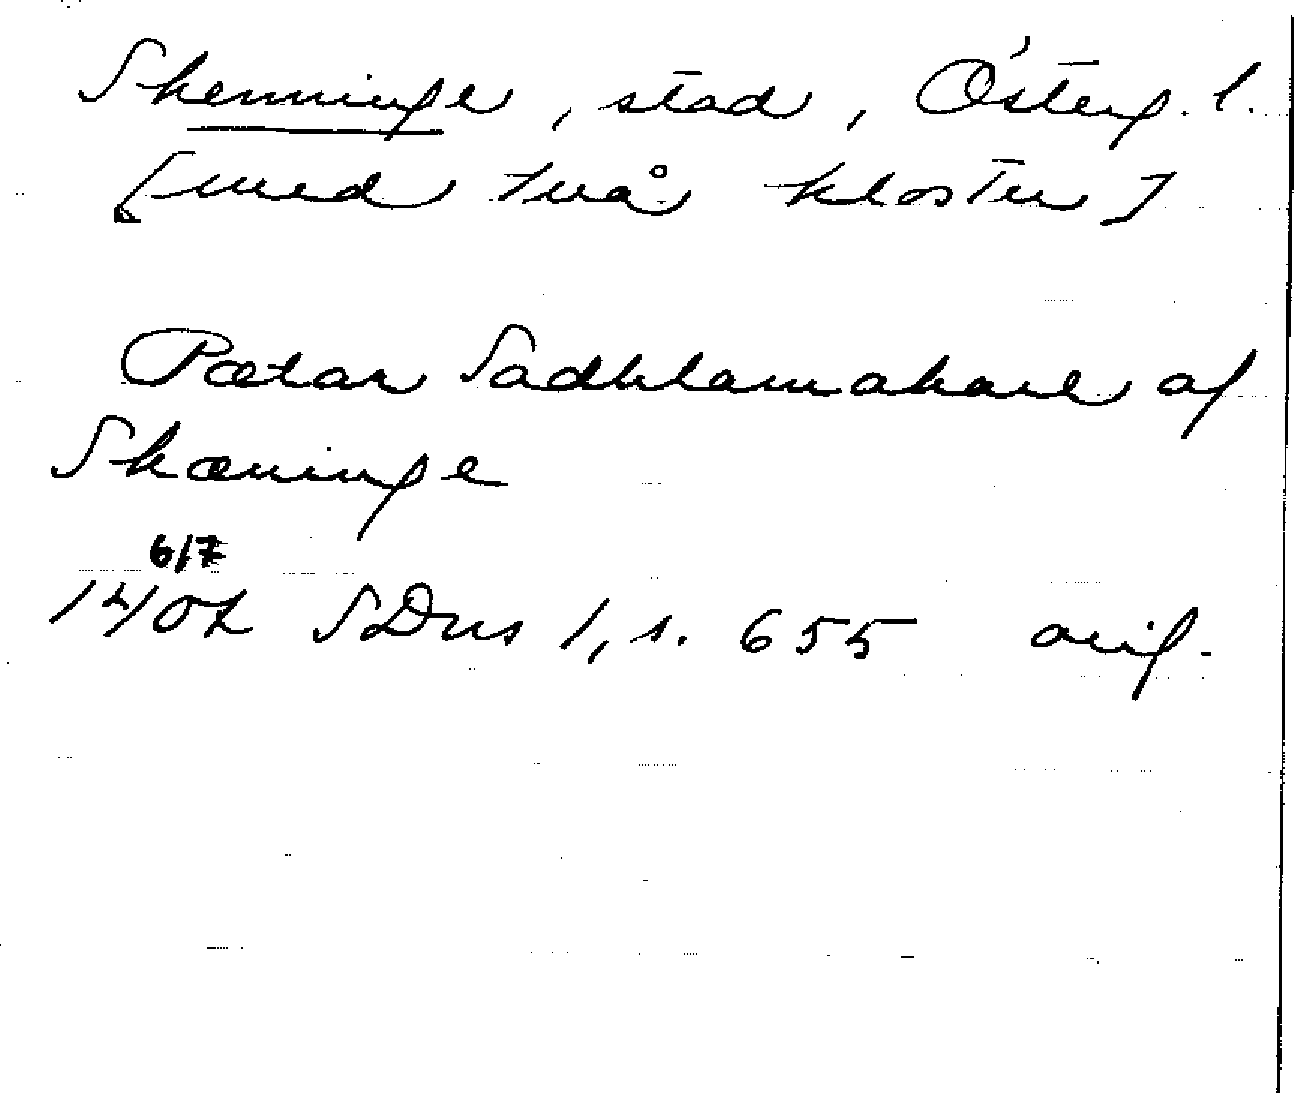 Skenninge, stad, Österg. l.
[med två kloster]
Pætar Sadhlamakare af
Skæninge
6/7
1402 SDns 1, s. 655 orig.